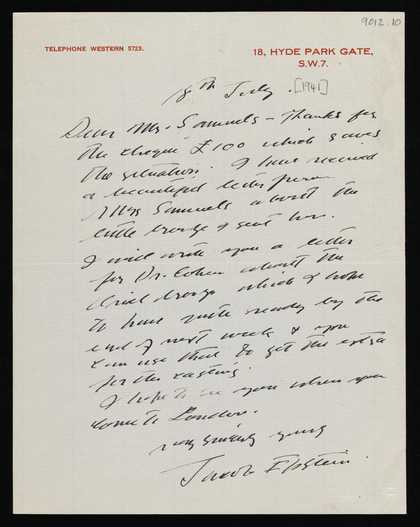 9012.10
TELEPHONE WESTERN 5723.
18, HYDE PARK GATE,
S.W.7.
8th July. [1941]
Dear Mr. Samuels – Thanks for
the cheque £100 which saves
the situation. I have received
a beautiful letter from
Mrs Samuels about the
little bronze I sent her.
I will write you a letter
for Dr. Cohen about the
bronze which I hope
to have quite ready by the
end of next week & you
can use that to get the extra
for the casting.
I hope to see you when you
come to London.
very sincerely yours
Jacob Epstein